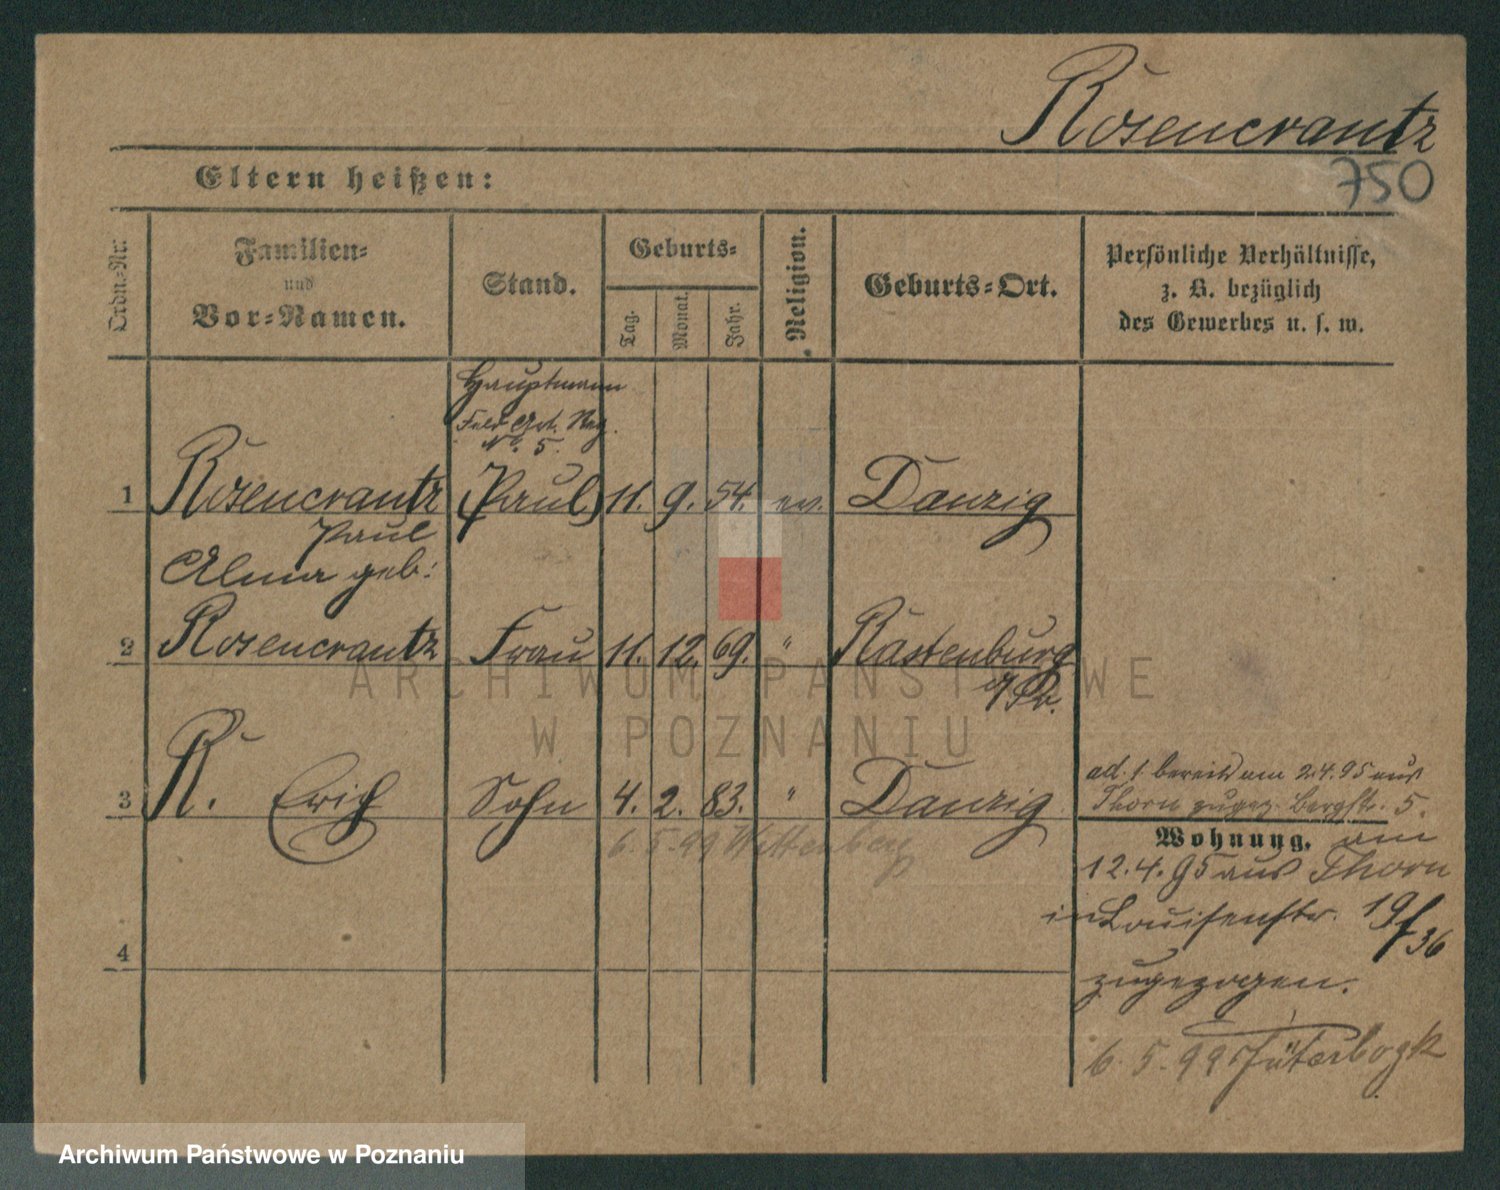 Rosencrantz
750
Eltern heißen:
Ordn.-Nr.
Familien-
und
Vor-Namen.
Stand.
Geburts-
Tag.
Monat.
Jahr.
Religion.
Geburts-Ort.
Persönliche Verhältnisse,
z. B. bezüglich
des Gewerbes u. s. w.
Hauptmann
Feld Art. Reg.
No. 5.
1 Rosencrantz (Paul) 11. 9. 54. ev. Danzig
Paul
Alma geb:
2 Rosencrantz Frau 11. 12. 69. " Rastenburg
O/Pr.
3 R. Erich Sohn 4. 2. 83. " Danzig
6. 5. 99 Wittenberg
4
ad. 1 bereits am 2.4.95 aus
Thorn zugez. Bergstr. 5.
Wohnung. am
12.4.95 aus Thorn
in Louisenstr. 19/36
zugezogen.
6. 5. 99 Jüterbogk
ARCHIWUM PAŃSTWOWE
W POZNANIU
Archiwum Państwowe w Poznaniu